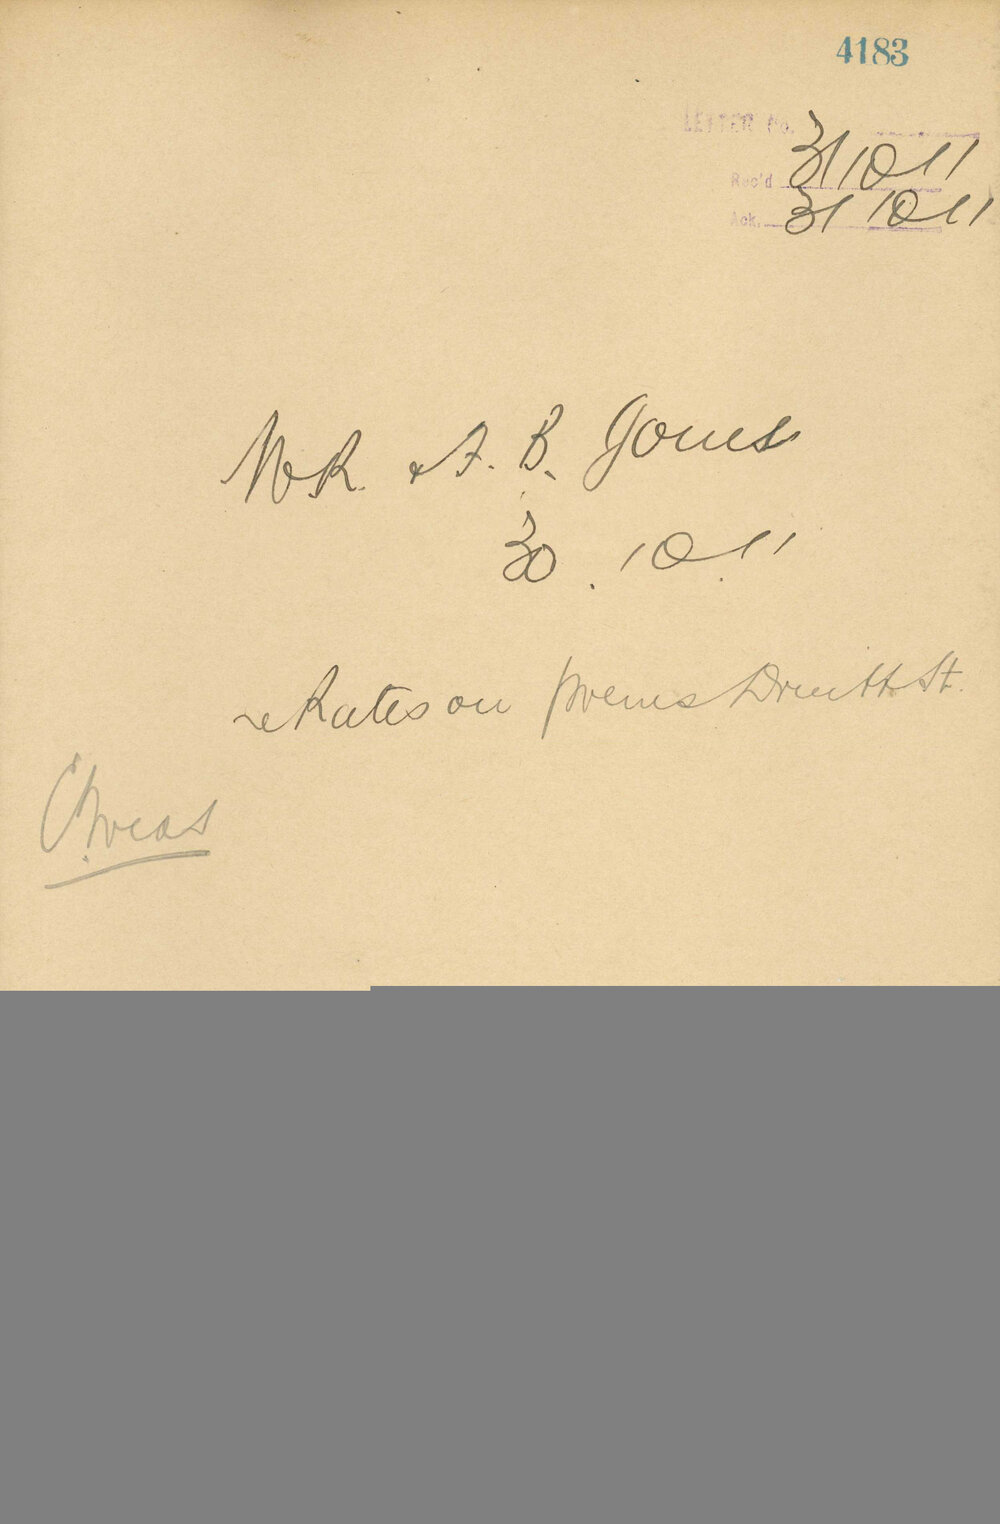 4183
LETTER No.
Rec'd 31/10/11
Ack. 31 10/11
W.R. & A. B. Jones
30.10.11
re Rates on prems Druitt St.
C. Treas